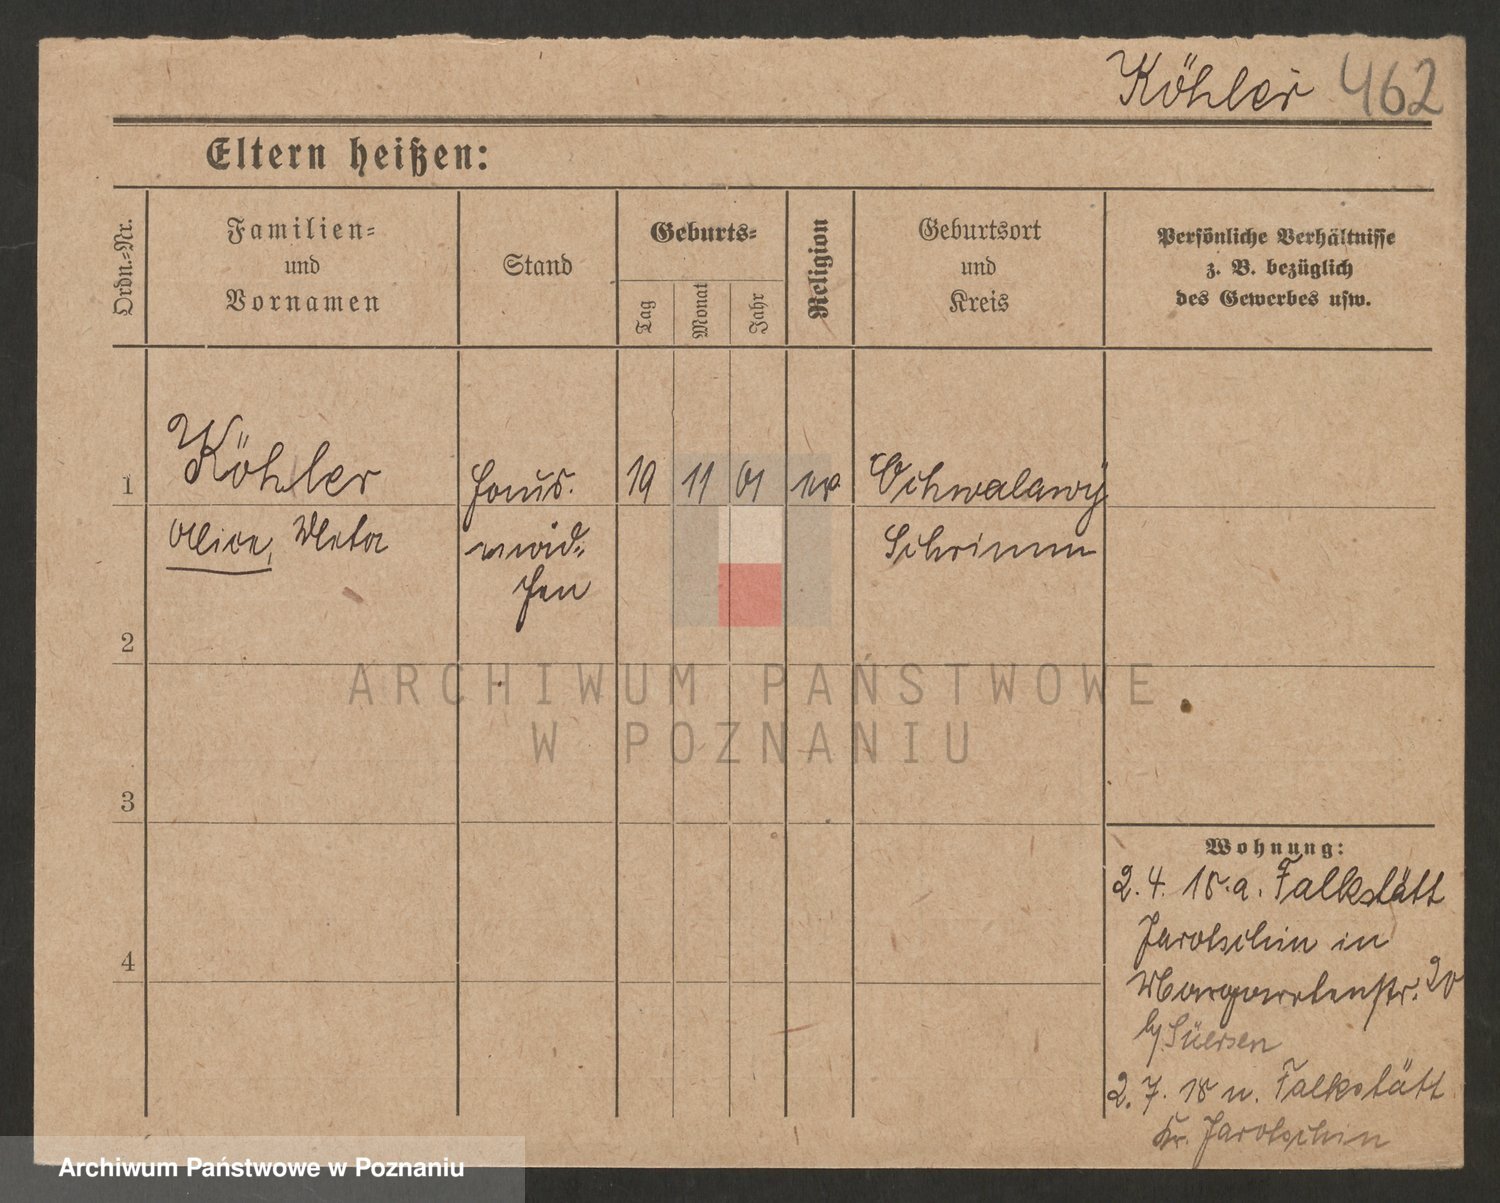 Köhler 462
Eltern heißen:
Ordn.-Nr.
Familien-
und
Vornamen
Stand
Geburts-
Tag
Monat
Jahr
Religion
Geburtsort
und
Kreis
Persönliche Verhältnisse
z. B. bezüglich
des Gewerbes usw.
1
Köhler
Alice, Meta
Haus-
mäd-
chen
19 11 01 ev
Schrimm
2
3
4
Wohnung:
2. 4. 18. a. Falkstätt
Jarotschin in
Margaretenstr. 20
b/ Süersen
2. 7. 18 n. Falkstätt
Kr. Jarotschin
ARCHIWUM PAŃSTWOWE
W POZNANIU
Archiwum Państwowe w Poznaniu